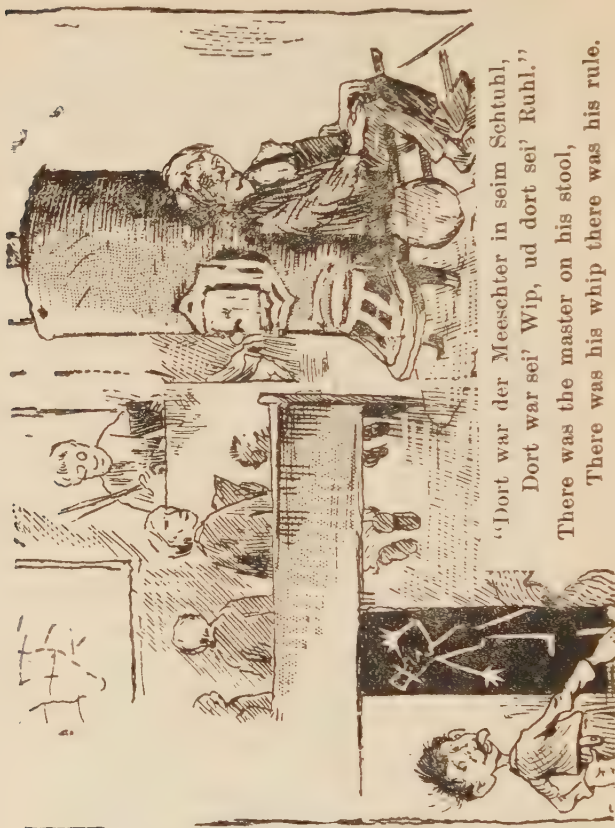 “Dort war der Meeschter in seim Schtuhl,
Dort war sei’ Wip, ud dort sei’ Ruhl.”
There was the master on his stool,
There was his whip there was his rule.